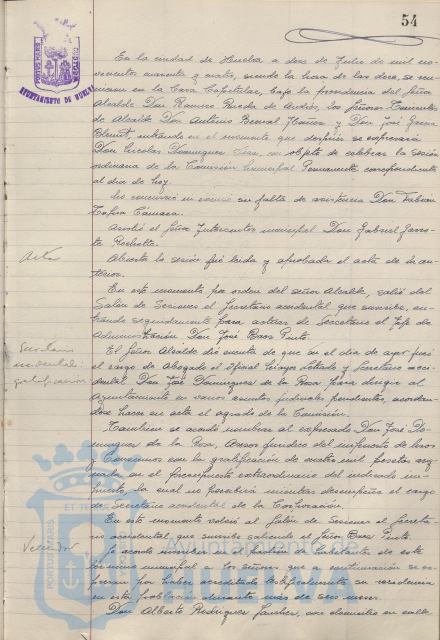 54
AYUNTAMIENTO DE HUELVA
En la ciudad de Huelva a doce de Julio de mil no-
vecientos cuarenta y cuatro, siendo la hora de las doce, se reu-
nieron en la Casa Capitular, bajo la presidencia del Señor
Alcalde Don Ramiro Rueda de Andrés, los Señores Tenientes
de Alcalde Don Antonio Bernal Mañez y Don José García
entrando en el momento que después se expresará
Don Nicolas Dominguez con objeto de celebrar la sesión
ordinaria de la Comisión Municipal Permanente correspondiente
al día de hoy.
No concurrió su falta de asistencia Don Fabian
Cámara.
Asistió el Señor Interventor municipal Don Gabriel
Acta
Abierta la sesión fué leida y aprobada el acta de la an-
terior.
En este momento por orden del señor Alcalde, salió del
Salón de Sesiones el Secretario accidental que suscribe, en-
trando seguidamente para actuar de Secretario el Jefe de
Administración Don José Baos Pinto.
Secretario
accidental:
gratificación
El Señor Alcalde dió cuenta de que en el día de ayer juró
el cargo de Abogado el oficial Letrado y Secretario acci-
dental Don José Dominguez de la Rosa para dirigir al
Ayuntamiento en varios asuntos judiciales pendientes, acordan-
dose hacer en acta el agrado de la Comisión.
Tambien se acordó nombrar al expresado Don José Do-
minguez de la Rosa, Asesor Jurídico del impuesto de
con la gratificación de cuatro mil pesetas
en el presupuesto extraordinario del indicado im-
puesto, la cual no percibirá mientras desempeñe el cargo
de Secretario accidental de la Corporación.
En este momento volvió al Salón de Sesiones el Secreta-
rio accidental que suscribe saliendo el Señor Baos Pinto.
Vecindad
Se acordó inscribir en el padrón de habitantes de este
término municipal a los señores que a continuación se ex-
presan por haber acreditado su residencia
en esta población durante más de seis meses.
Don Alberto Rodriguez Sanchez, con domicilio en calle
Ayuntamiento de
PORTUS MARIS
ET TERRAE